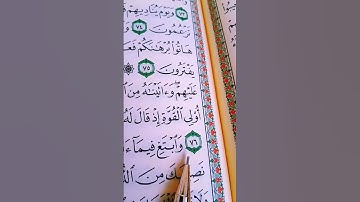 ٧٣ وَيَوْمَ يُنَادِيهِمْ
تَزْعُمُونَ ٧٤
هَاتُوا۟ بُرْهَـٰنَكُمْ فَعَـ
يَفْتَرُونَ ٧٥ ۞
عَلَيْهِمْ ۖ وَءَاتَيْنَـٰهُ مِنَ
أُو۟لِى ٱلْقُوَّةِ إِذْ قَالَ لَهُ
٧٦ وَٱبْتَغِ فِيمَآ ءَا
مِنَ